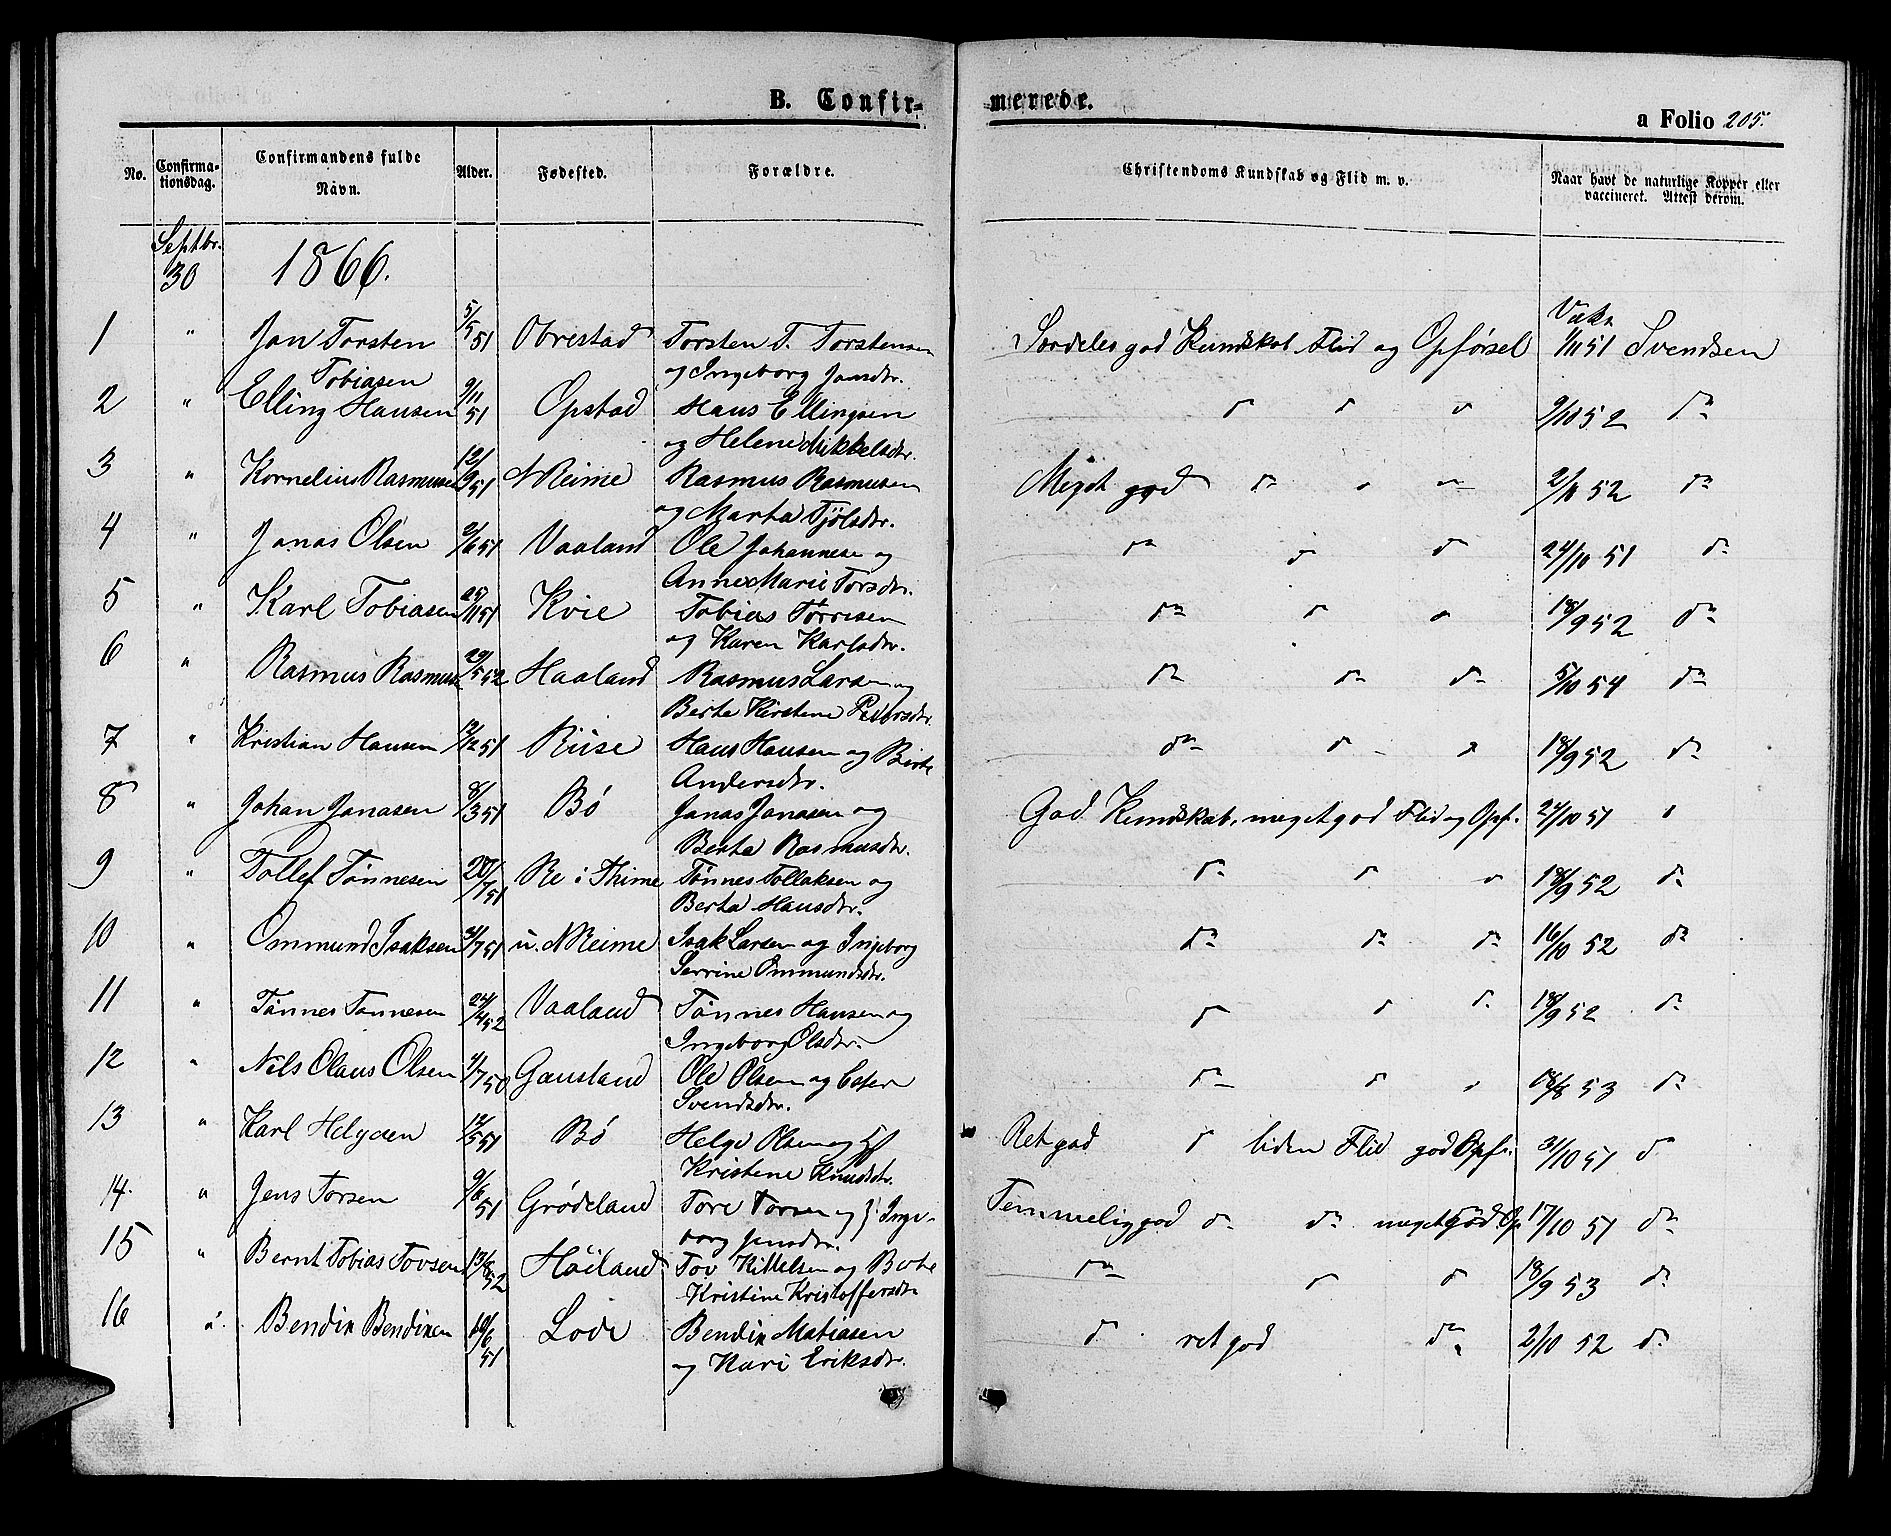 B. Confirmerede.
a Folio 205.
No. Confirmationsdag. Confirmandens fulde Navn. Alder. Fødested. Forældre. Christendoms Kundskab og Flid m. v. Naar havt de naturlige Kopper eller vaccineret. Attest derom.
Septbr. 30 1866.
1 " Jan Torsten Tobiasen 5/5 51 Obrestad Torsten T. Torstensen og Ingeborg Jansdtr. Særdeles god Kundskab, Flid og Opførsel Vakc 1/11 51 Svendsen
2 " Elling Hansen 9/11 51 Opstad Hans Ellingsen og Helene Mikkelsdtr. do do do 9/10 52 do
3 " Kornelius Rasmusen 12/9 51 N Reime Rasmus Rasmusen og Marta Tjølsdtr. Meget god do do do 2/10 52 do
4 " Jonas Olsen 2/6 51 Vaaland Ole Johannese og Anne Marie Torsdtr. do do do 24/10 51 do
5 " Karl Tobiasen 25/11 51 Kvie Tobias Tørresen og Karen Karlsdtr. do do do 18/9 52 do
6 " Rasmus Rasmusen 29/5 52 Haaland Rasmus Larsen og Berta Kirstene Pedersdtr. do do do 5/10 54 do
7 " Kristian Hansen 13/12 51 Riise Hans Hansen og Birte Andersdtr. do do do 18/9 52 do
8 " Johan Jonasen 8/3 51 Bø Jonas Jonasen og Berta Rasmusdtr. God Kundskab, meget god Flid og Opf. 24/10 51 do
9 " Tollef Tønnesen 20/7 51 Re i Thime Tønnes Tollaksen og Berta Hansdtr. do do do 18/9 52 do
10 " Ommund Isaksen 31/7 51 u. N Reime Isak Larsen og Ingeborg Serrine Ommundsdtr. do do do 16/10 52 do
11 " Tønnes Tønnesen 24/4 52 Vaaland Tønnes Hansen og Ingeborg Olsdtr. do do do 18/9 52 do
12 " Nils Olaus Olsen 11/7 50 Gausland Ole Olsen og Ester Svendsdtr. do do do 18/8 53 do
13 " Karl Helgesen 12/5 51 Bø Helge Olsen og Kristene Knudsdtr. Ret god do liden Flid god Opf. 31/10 51 do
14. " Jens Torsen 9/6 51 Grødeland Tore Torsen og Ingeborg Jensdtr. Temmelig god do do meget god Op 17/10 51 do
15 " Bernt Tobias Tovsen 13/8 52 Høiland Tov Kittelsen og Berte Kristine Kristoffersdtr do do do 18/9 53 do
16 " Bendix Bendixen 10/6 51 Lode Bendix Matiasen og Kari Eriksdtr. do ret god do 2/10 52 do